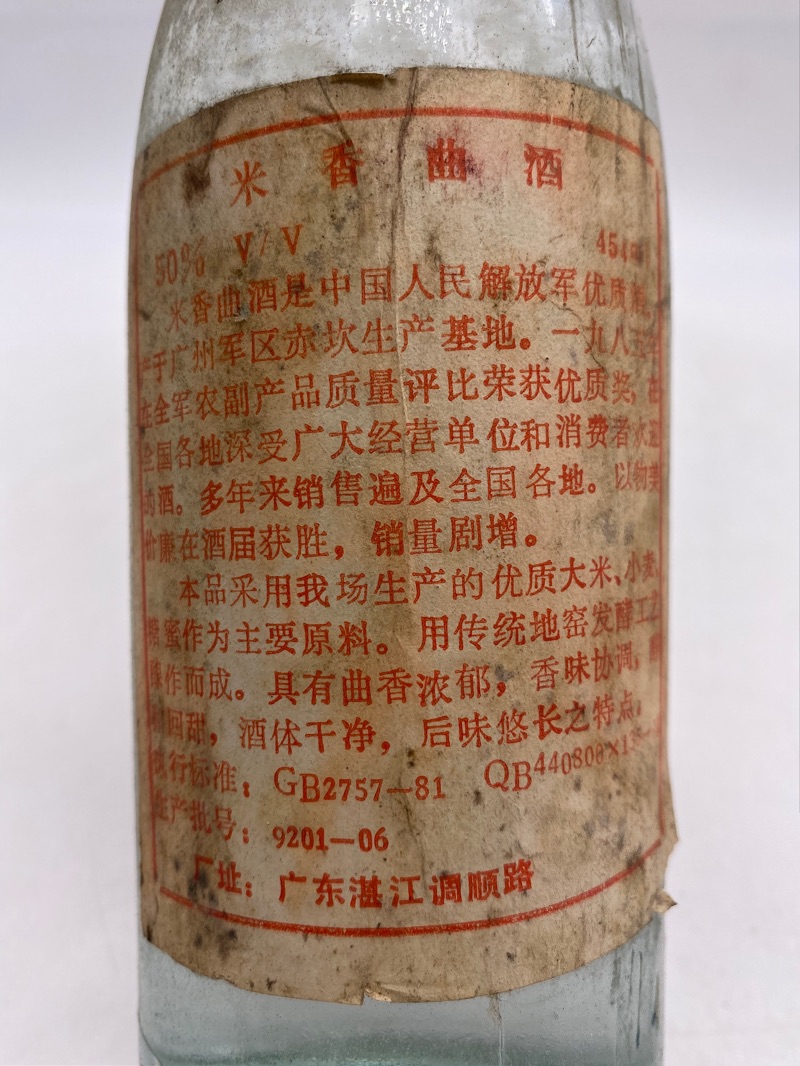 米香曲酒
50% V/V 454
米香曲酒是中国人民解放军优质
产于广州军区赤坎生产基地。一九八三年
在全军农副产品质量评比荣获优质奖，在
全国各地深受广大经营单位和消费者欢迎
的酒。多年来销售遍及全国各地。以物美
价廉在酒届获胜，销量剧增。
本品采用我场生产的优质大米、小麦、
糖蜜作为主要原料。用传统地窑发酵工艺
操作而成。具有曲香浓郁，香味协调，
回甜，酒体干净，后味悠长之特点。
执行标准：GB2757—81 QB440800×13
生产批号：9201—06
厂址：广东湛江调顺路